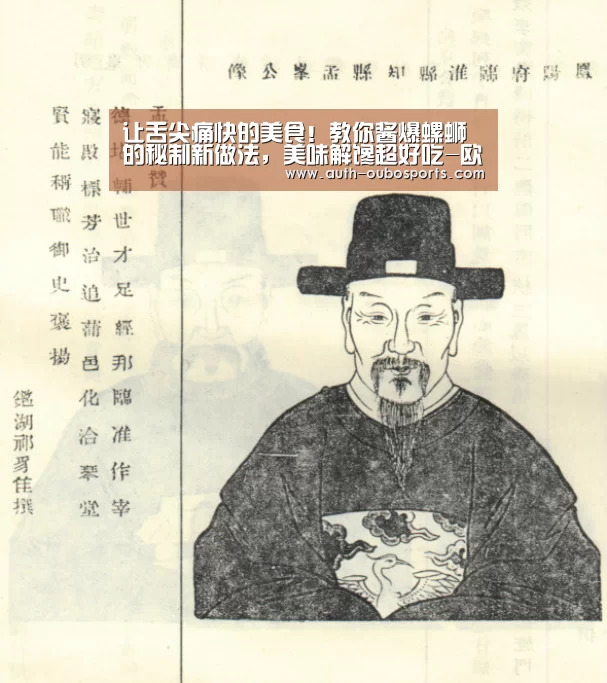 鳳陽府臨淮縣知縣孟峯公像
让舌尖痛快的美食！教你酱爆螺蛳
的秘制新做法，美味解馋超好吃-欧
www.auth-oubosports.com
孟
德堪輔世才足經邦臨淮作宰
寢殿標芳治追蒲邑化洽琴堂
賢能稱職御史褒揚
鑑湖祁豸佳撰